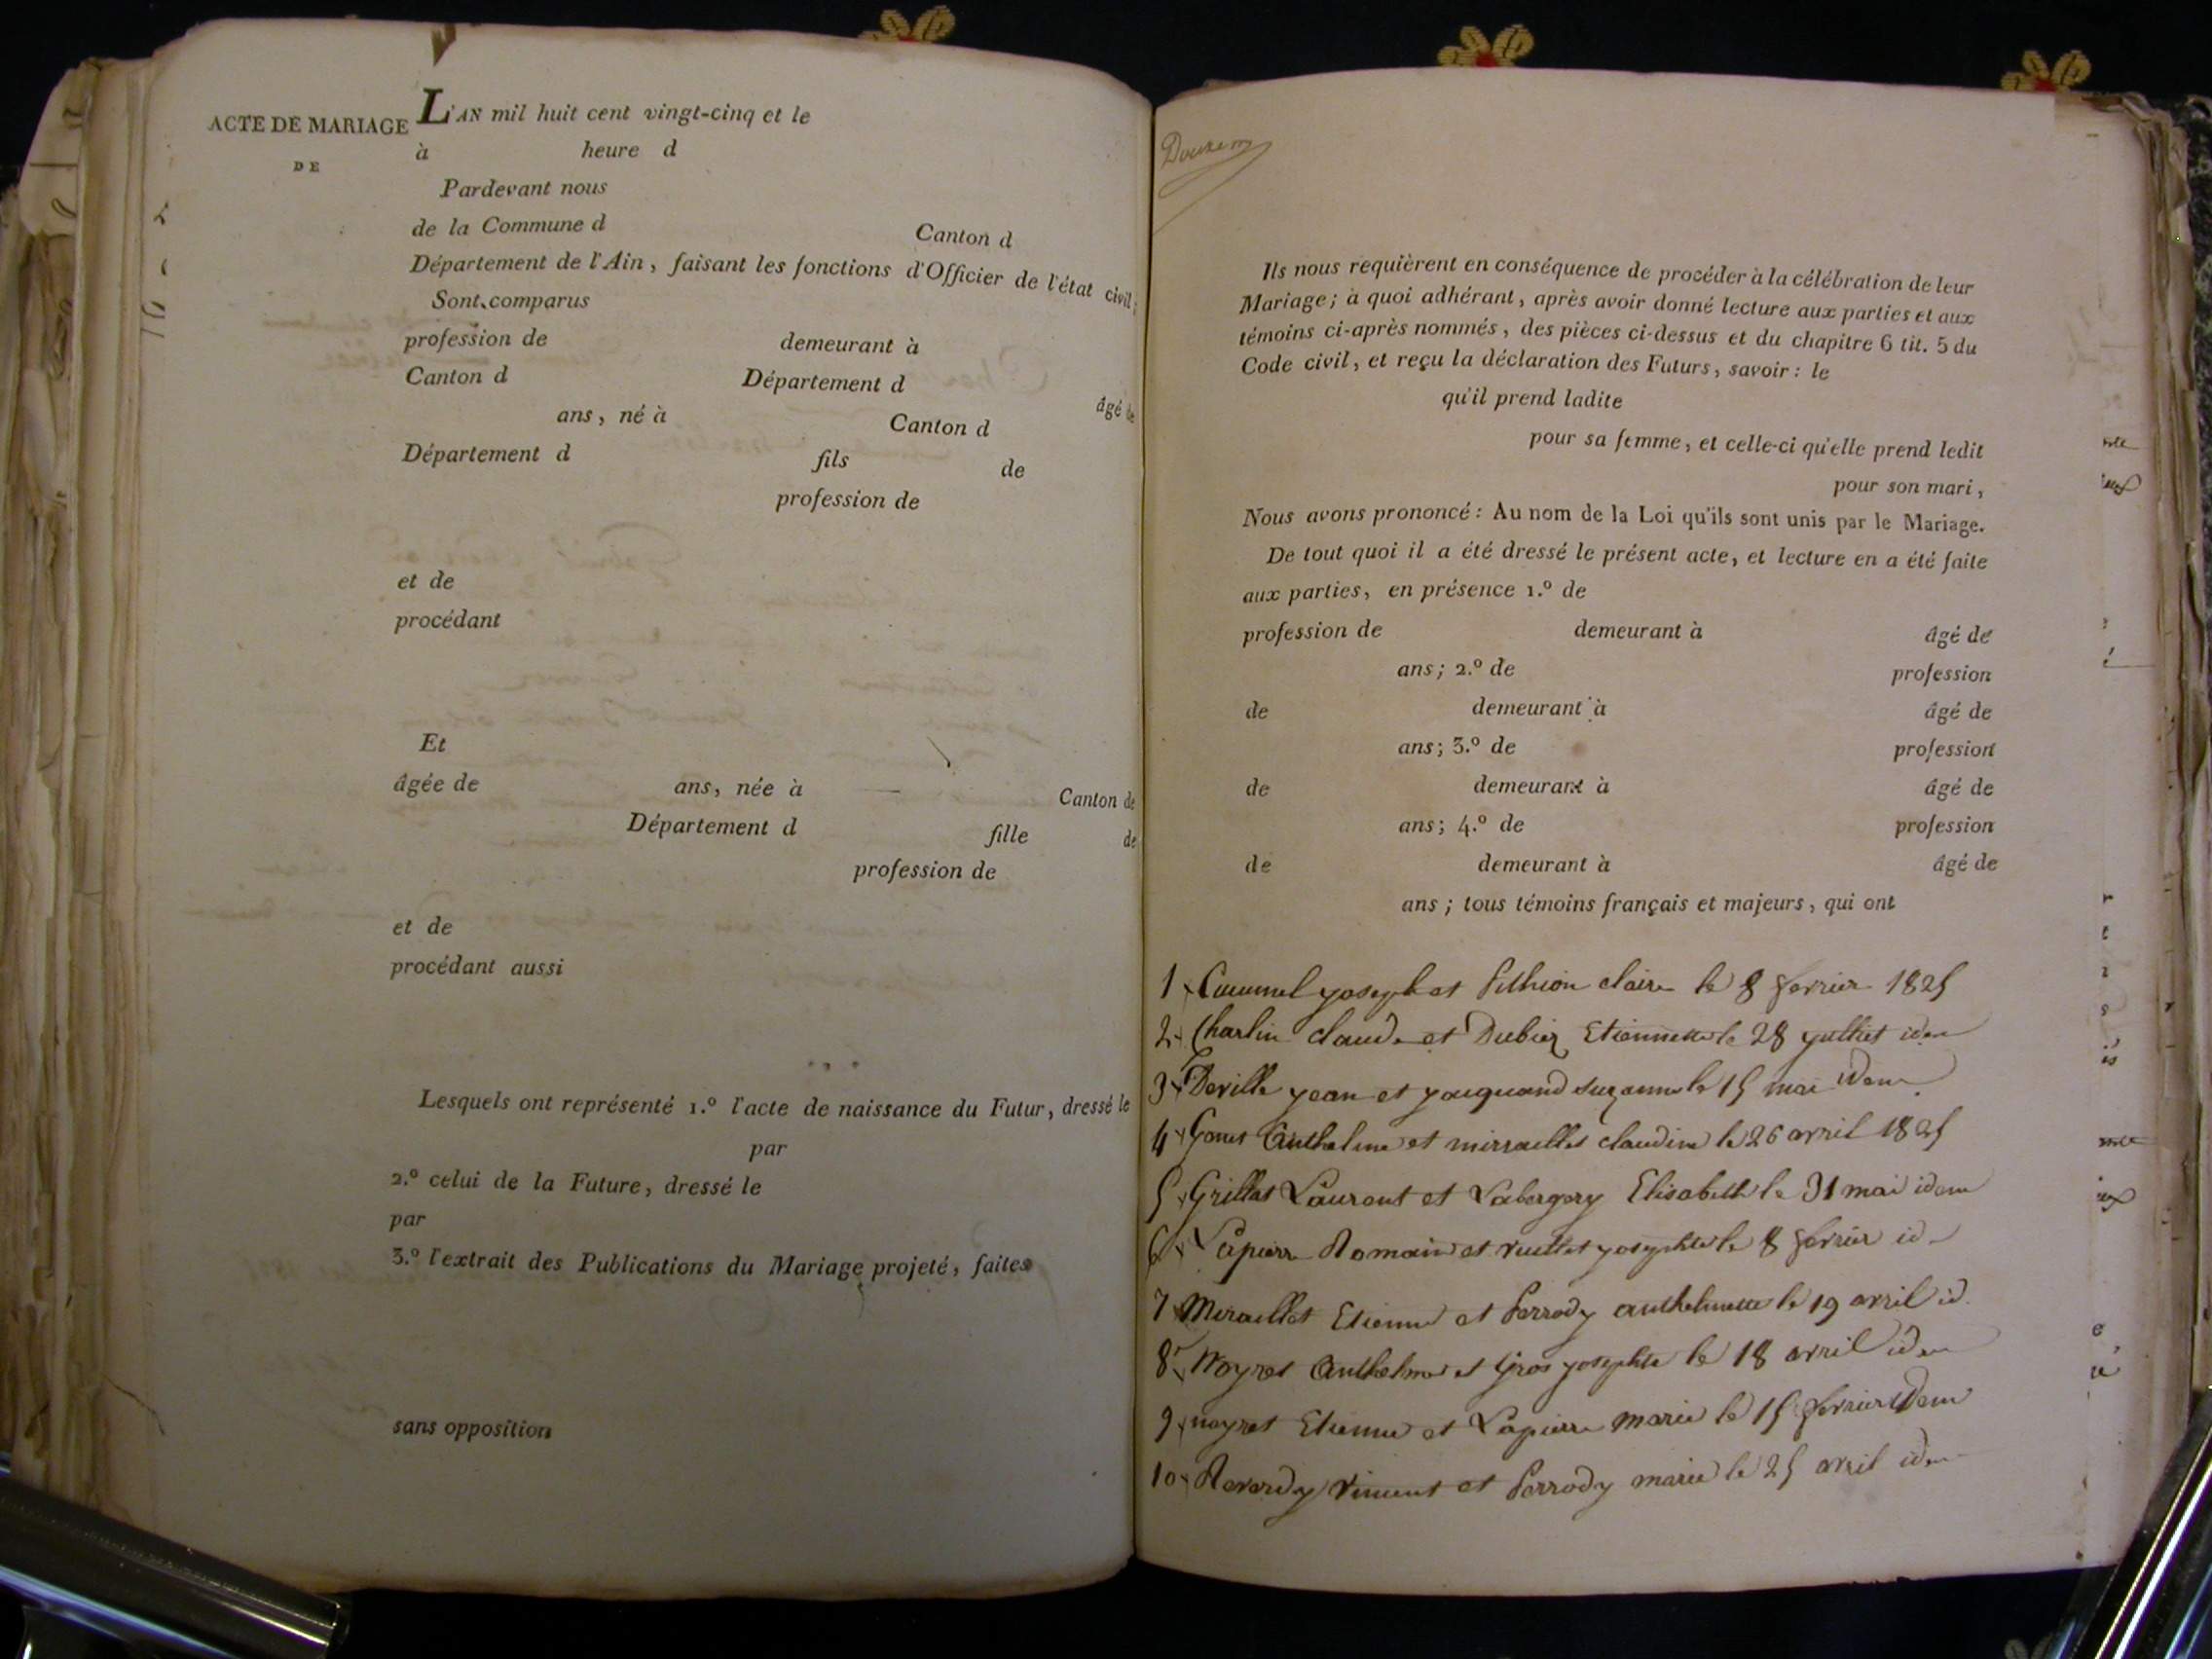 ACTE DE MARIAGE
DE
L'AN mil huit cent vingt-cinq et le
à heure d
Pardevant nous
de la Commune d Canton d
Département de l'Ain, faisant les fonctions d'Officier de l'état civil;
Sont comparus
profession de demeurant à
Canton d Département d âgé de
ans, né à Canton d
Département d fils de
profession de
et de
procédant
Et
âgée de ans, née à Canton de
Département d fille de
profession de
et de
procédant aussi
Lesquels ont représenté 1.º l'acte de naissance du Futur, dressé le
par
2.º celui de la Future, dressé le
par
3.º l'extrait des Publications du Mariage projeté, faites
sans opposition
Ils nous requièrent en conséquence de procéder à la célébration de leur
Mariage; à quoi adhérant, après avoir donné lecture aux parties et aux
témoins ci-après nommés, des pièces ci-dessus et du chapitre 6 tit. 5 du
Code civil, et reçu la déclaration des Futurs, savoir: le
qu'il prend ladite
pour sa femme, et celle-ci qu'elle prend ledit
pour son mari,
Nous avons prononcé: Au nom de la Loi qu'ils sont unis par le Mariage.
De tout quoi il a été dressé le présent acte, et lecture en a été faite
aux parties, en présence 1.º de
profession de demeurant à âgé de
ans; 2.º de profession
de demeurant à âgé de
ans; 3.º de profession
de demeurant à âgé de
ans; 4.º de profession
de demeurant à âgé de
ans; tous témoins français et majeurs, qui ont
1 joseph et claire le 8 fevrier 1825
2 Charlin claude et Dubiez Etiennette le 28 juillet idem
3 Deville jean et jacquand suzanne le 15 mai idem
4 Gonet Anthelme et miraillet claudine le 26 avril 1825
5 Grillet Laurent et Labergery Elisabeth le 31 mai idem
6 Lapierre Romain et ruellet josephte le 8 fevrier id
7 Miraillet Etienne et Perrody anthelmette le 19 avril id.
8 Noyret Anthelme et Gros josephte le 18 avril idem
9 noyret Etienne et Lapierre marie le 15 fevrier idem
10 Reverdy Vincent et Perrody marie le 25 avril idem